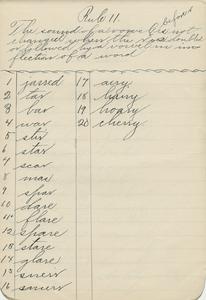 Rule 11.
before r
The sound of a vowel is not
changed when the r is doubled
or followed by a vowel in in
flection of a word
1 jarred 17 airy
2 tar 18 hairy
3 bar 19 hoary
4 war 20 cherry
5 stir
6 star
7 scar
8 mar
9 spar
10 dare
11 flare
12 spare
13 stare
14 glare
15
16